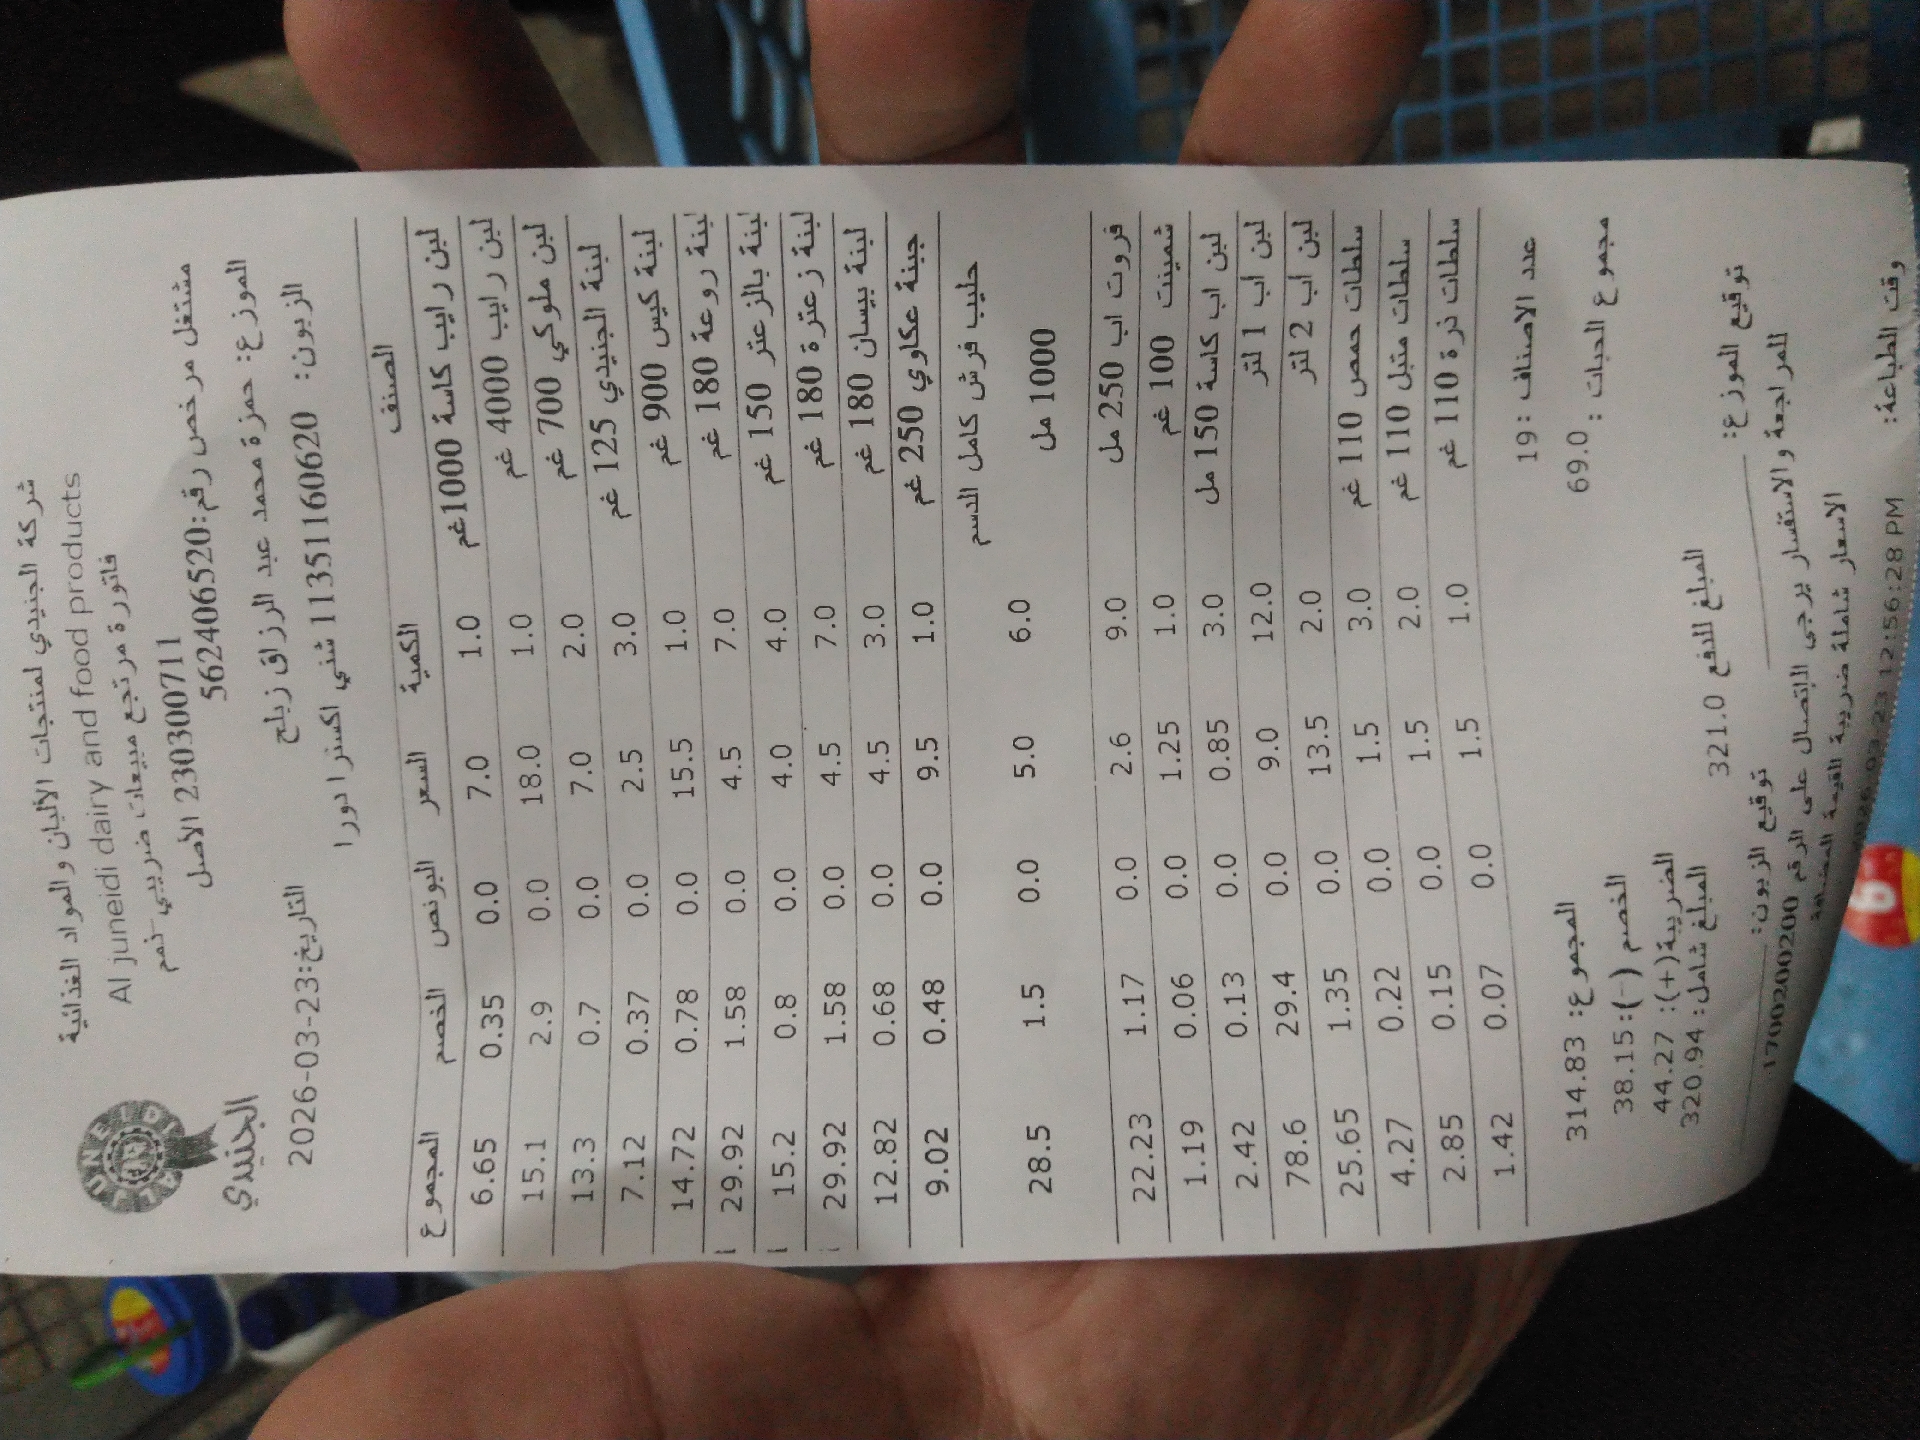 شركة الجنيدي لمنتجات الألبان والمواد الغذائية
Al juneidi dairy and food products
فاتورة مرتجع مبيعات ضريبي-ذمم
2303000711 الأصل
مشتغل مرخص رقم:562406520
الجنيدي
الموزع: حمزة محمد عبد الرزاق زبلح
التاريخ:2026-03-23
الزبون: 1135116062​0 شني اكسترا دورا
الصنف الكمية السعر البونص الخصم المجموع
لبن رايب كاسة 1000غم 1.0 7.0 0.0 0.35 6.65
لبن رايب 4000 غم 1.0 18.0 0.0 2.9 15.1
لبن ملوكي 700 غم 2.0 7.0 0.0 0.7 13.3
لبنة الجنيدي 125 غم 3.0 2.5 0.0 0.37 7.12
لبنة كيس 900 غم 1.0 15.5 0.0 0.78 14.72
لبنة روعة 180 غم 7.0 4.5 0.0 1.58 29.92
لبنة بالزعتر 150 غم 4.0 4.0 0.0 0.8 15.2
لبنة زعترة 180 غم 7.0 4.5 0.0 1.58 29.92
لبنة بيسان 180 غم 3.0 4.5 0.0 0.68 12.82
جبنة عكاوي 250 غم 1.0 9.5 0.0 0.48 9.02
حليب فرش كامل الدسم
1000 مل 6.0 5.0 0.0 1.5 28.5
فروت اب 250 مل 9.0 2.6 0.0 1.17 22.23
شمينت 100 غم 1.0 1.25 0.0 0.06 1.19
لبن اب كاسة 150 مل 3.0 0.85 0.0 0.13 2.42
لبن اب 1 لتر 12.0 9.0 0.0 29.4 78.6
لبن اب 2 لتر 2.0 13.5 0.0 1.35 25.65
سلطات حمص 110 غم 3.0 1.5 0.0 0.22 4.27
سلطات متبل 110 غم 2.0 1.5 0.0 0.15 2.85
سلطات ذرة 110 غم 1.0 1.5 0.0 0.07 1.42
عدد الاصناف :19
المجموع: 314.83
مجموع الحبات : 69.0
الخصم (-):38.15
الضريبة(+): 44.27
المبلغ شامل: 320.94
المبلغ للدفع 321.0
توقيع الموزع:
توقيع الزبون:
للمراجعة والاستفسار يرجى الإتصال على الرقم 1700200200
الاسعار شاملة ضريبة القيمة المضافة
وقت الطباعة: 2026-03-23 12:56:28 PM